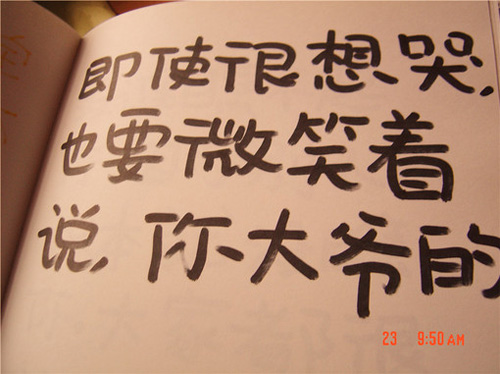 即使很想哭,
也要微笑着
说,你大爷的
23 9:50AM